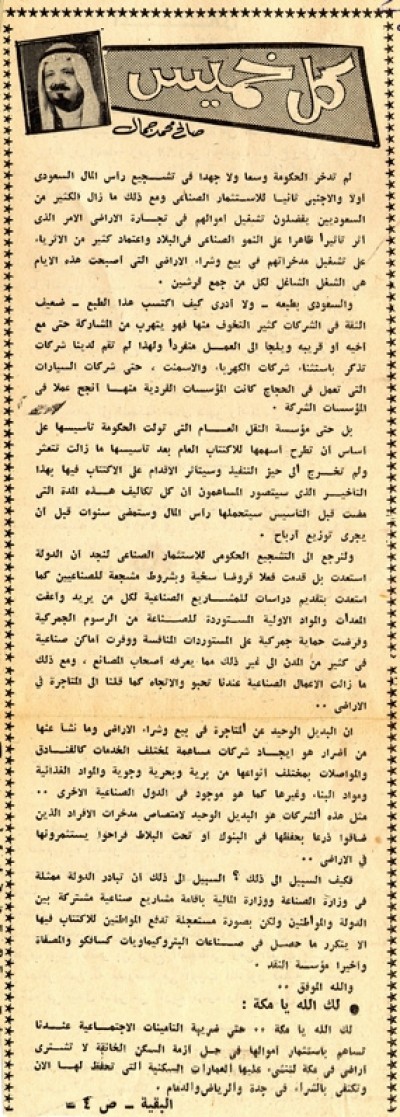 كل خميس
صالح محمد جمال
لم تدخر الحكومة وسعا ولا جهدا في تشجيع رأس المال السعودي
أولا والاجنبي ثانيا للاستثمار الصناعي ومع ذلك ما زال الكثير من
السعوديين يفضلون تشغيل أموالهم في تجارة الاراضي الامر الذي
أثر تأثيرا ظاهرا على النمو الصناعي في البلاد واعتماد كثير من الاثرياء
على تشغيل مدخراتهم في بيع وشراء الاراضي التي أصبحت هذه الايام
هي الشغل الشاغل لكل من جمع قرشين .
والسعودي بطبعه – ولا أدري كيف اكتسب هذا الطبع – ضعيف
الثقة في الشركات كثير التخوف منها فهو يتهرب من المشاركة حتى مع
أخيه أو قريبه ويلجأ الى العمل منفردا ولهذا لم تقم لدينا شركات
تذكر باستثناء شركات الكهرباء والاسمنت ، حتى شركات السيارات
التي تعمل في الحجاج كانت المؤسسات الفردية منها أنجح عملا في
المؤسسات الشركة .
بل حتى مؤسسة النقل العام التي تولت الحكومة تأسيسها على
أساس أن تطرح أسهمها للاكتتاب العام بعد تأسيسها ما زالت تتعثر
ولم تخرج الى حيز التنفيذ وسيتأثر الاقدام على الاكتتاب فيها بهذا
التأخير الذي سيتصور المساهمون أن كل تكاليف هذه المدة التي
مضت قبل التأسيس سيتحملها رأس المال وستمضي سنوات قبل أن
يجرى توزيع أرباح .
ولنرجع الى التشجيع الحكومي للاستثمار الصناعي لنجد أن الدولة
استعدت بل قدمت فعلا قروضا سخية وبشروط مشجعة للصناعيين كما
استعدت بتقديم دراسات للمشاريع الصناعية لكل من يريد وأعفت
المعدات والمواد الاولية المستوردة للصناعة من الرسوم الجمركية
وفرضت حماية جمركية على المستوردات المنافسة ووفرت أماكن صناعية
في كثير من المدن الى غير ذلك مما يعرفه أصحاب المصانع ، ومع ذلك
ما زالت الاعمال الصناعية عندنا تحبو والاتجاه كما قلنا الى المتاجرة في
الاراضي ..
ان البديل الوحيد عن المتاجرة في بيع وشراء الاراضي وما نشأ عنها
من أضرار هو ايجاد شركات مساهمة لمختلف الخدمات كالفنادق
والمواصلات بمختلف أنواعها من برية وبحرية وجوية والمواد الغذائية
ومواد البناء وغيرها كما هو موجود في الدول الصناعية الاخرى ..
مثل هذه الشركات هو البديل الوحيد لامتصاص مدخرات الافراد الذين
ضاقوا ذرعا بحفظها في البنوك أو تحت البلاط فراحوا يستثمرونها
في الاراضي ..
فكيف السبيل الى ذلك ؟ السبيل الى ذلك أن تبادر الدولة ممثلة
في وزارة الصناعة ووزارة المالية باقامة مشاريع صناعية مشتركة بين
الدولة والمواطنين ولكن بصورة مستعجلة تدفع المواطنين للاكتتاب فيها
الا يتكرر ما حصل في صناعات البتروكيماويات كسافكو والمصفاة
وأخيرا مؤسسة النقد .
والله الموفق ..
● لك الله يا مكة :
لك الله يا مكة .. حتى ضريبة التأمينات الاجتماعية عندنا
تساهم باستثمار أموالها في حل أزمة السكن الخانقة لا تشترى
أراضي في مكة لتنشيء عليها العمارات السكنية التي تحفظ لها الآن
وتكتفي بالشراء في جدة والرياض والدمام .
البقية – ص ٤ –